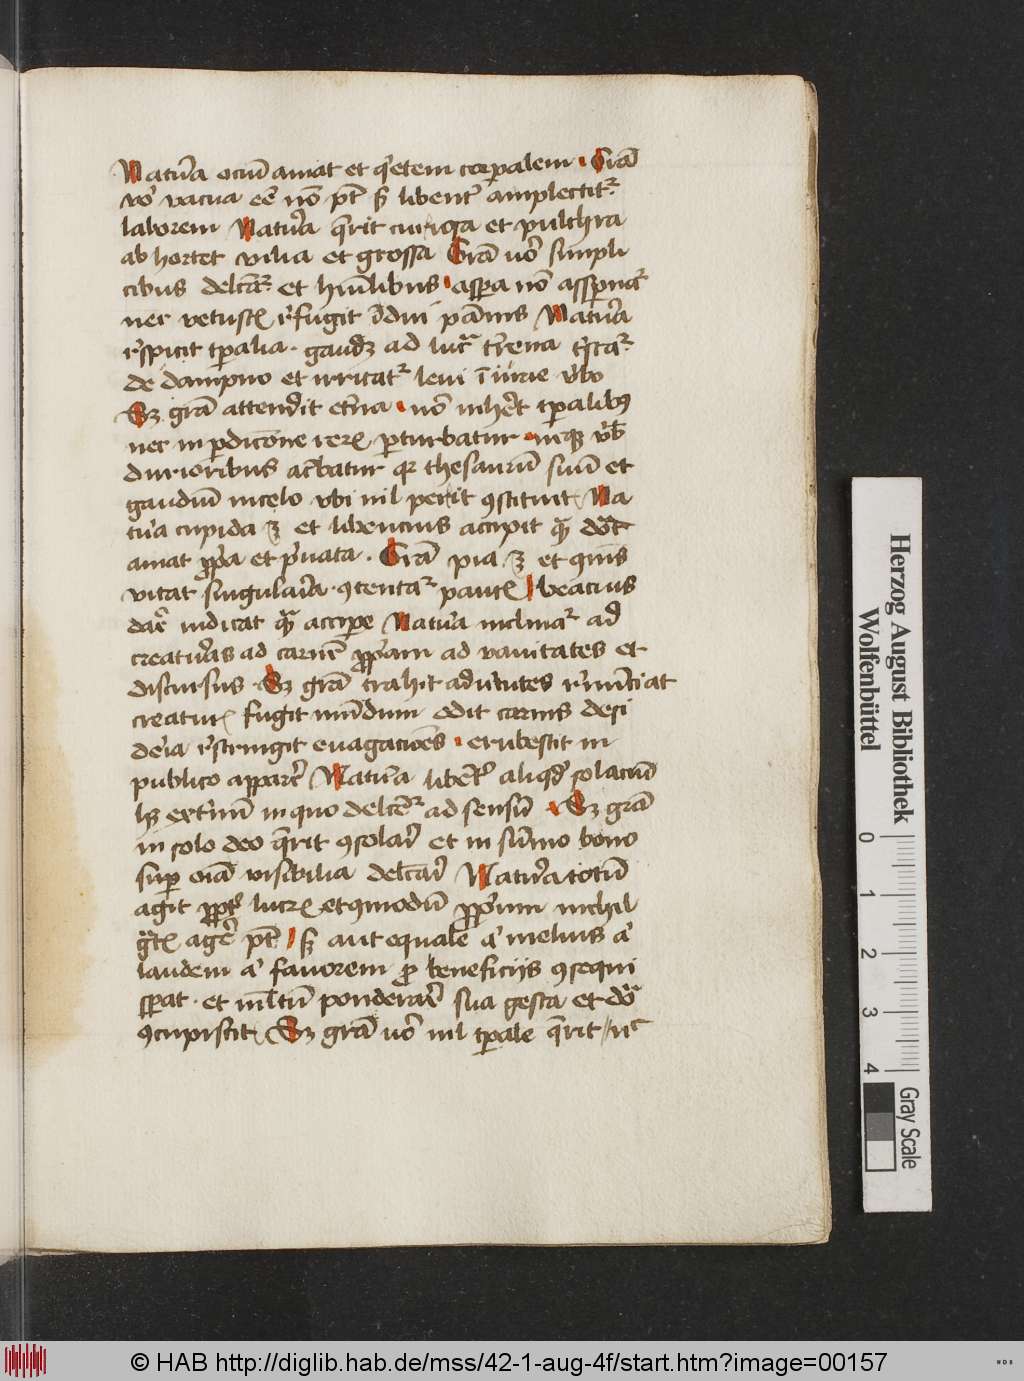 Natura ociū amat et q̄etem corpalem · Grā
vō vacua eē nō pt̄ sꝫ libent̄ amplectit᷑
laborem Natura q̄rit curiosa et pulchra
abhorret vilia et grossa Grā vō simpli
cibus delc̄at᷑ et hūilibus · aspa nō asp̄nat᷑
nec vetustꝭ rēfugit īdui pānis Natura
rēspicit tp̄alia · gaudꝫ ad lucra trēna t̄stat᷑
de dampno et irritat᷑ leui īiurie v̄bo
Sꝫ grā attendit et̄na · nō inhēt tp̄alibꝰ
nec in pdicōne rerꝝ p̄turbatur · neqꝫ v̄bꝭ
durioribus ac̄batur qꝛ thesaurū suū et
gaudiū in celo vbi nil perit ꝯstituit Na
tura cupida ē et libencius accipit qͣꝫ dōt
amat pp̄a et p̄uata · Grā pia ē et ꝯuīs
vitat singularia · ꝯtentat᷑ paucꝭ beacius
darē iudicat qͣꝫ accipe Natura inclinat᷑ ad
creaturas ad carnē pp̄am ad vanitates et
discursus · Sꝫ grā trahit ad v̄tutes rēnūciat
creaturꝭ fugit mūdum odit carnis desi
deria rēstringit euagacōes · erubescit in
publico apparē Natura libent̄ aliqd̓ solaciū
hꝫ ext̄nū in quo delcēt᷑ ad sensū · Sꝫ grā
in solo deo q̄rit ꝯsolari et in sūmo bono
sup oīa visibilia delc̄ari Natura totū
agit ppt̄ lucrꝫ et ꝯmodū pp̄ium nichil
gͣtꝭ agē pt̄ sꝫ aut equale aͭ melius aͭ
laudem aͭ fauorem ꝓ beneficijs ꝯsequi
sp̄at · et ml̄tū ponderarē sua gesta et dōa
ꝯcupiscit · Sꝫ grā vō nil tp̄ale q̄rit / nͨ
Herzog August Bibliothek
Wolfenbüttel
0 1 2 3 4
Gray Scale
© HAB http://diglib.hab.de/mss/42-1-aug-4f/start.htm?image=00157